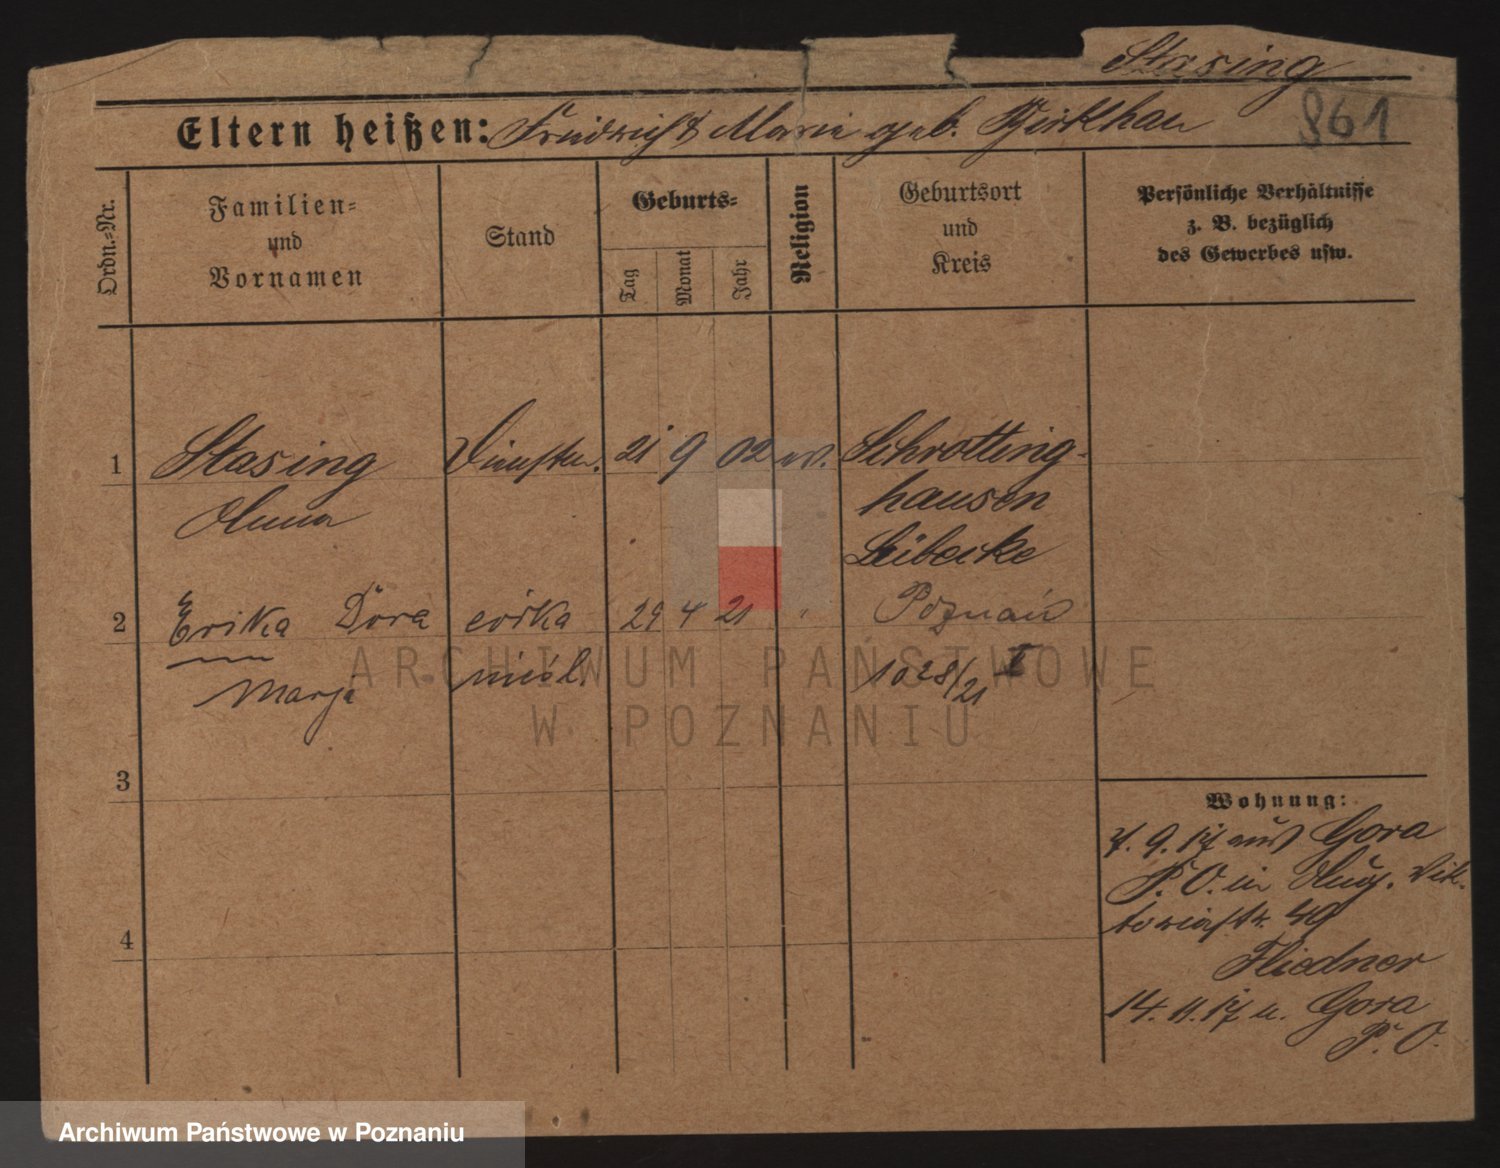 Stasing
861
Eltern heißen: Friedrich & Marie geb. Birkhan
Ordn.=Nr.
Familien=
und
Vornamen
Stand
Geburts=
Tag
Monat
Jahr
Religion
Geburtsort
und
Kreis
Persönliche Verhältnisse
z. B. bezüglich
des Gewerbes usw.
1 Stasing 21 9 02 ev. Schrotting-
Anna hausen
Lübecke
2 Erika Dora córka 29 4 21 " Poznań
Marja nieśl. 1028/21 I
3
4
Wohnung:
7. 9. 17 aus Gora
P. O. in Aug. Vik-
toriastr. 49
Fliedner
14. 11. 17 n. Gora
P. O.
ARCHIWUM PAŃSTWOWE
W POZNANIU
Archiwum Państwowe w Poznaniu